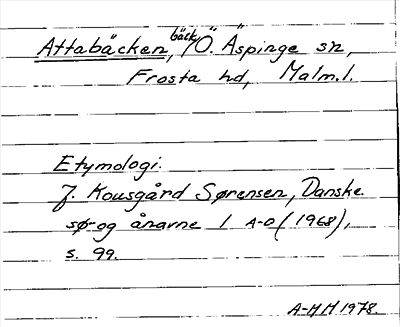 Attabäcken, bäck, Ö. Äspinge sn,
Frosta hd, Malm.l.
Etymologi.
J. Kousgård Sørensen, Danske
sø- og ånavne 1 A-D (1968),
s. 99.
A-HH 1978.